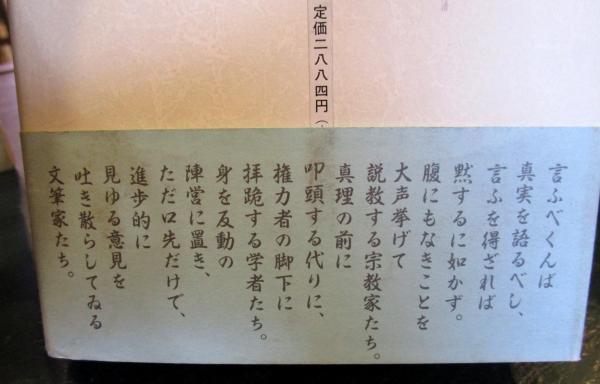 定価二八八四円（
言ふべくんば
真実を語るべし、
言ふを得ざれば
黙するに如かず。
腹にもなきことを
大声挙げて
説教する宗教家たち。
真理の前に
叩頭する代りに、
権力者の脚下に
拝跪する学者たち。
身を反動の
陣営に置き、
ただ口先だけで、
進歩的に
見ゆる意見を
吐き散らしてゐる
文筆家たち。